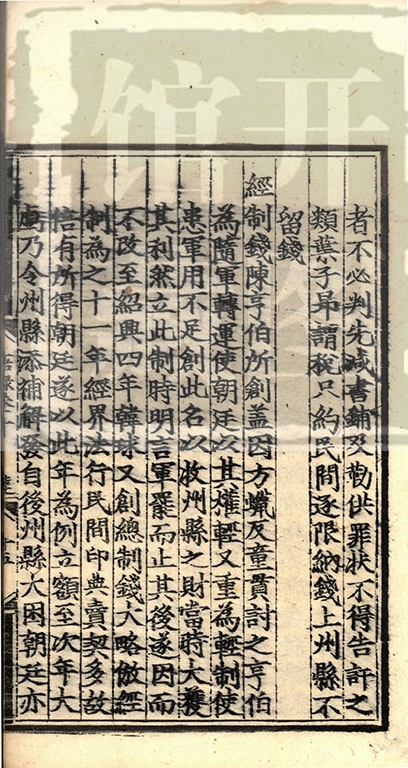 者不必判先減書鋪及勘供罪状不得告訐之
類葉子昂謂稅只約民間逐限納錢上州縣不
留錢
經制錢陳亨伯所創盖因方蠟反童貫討之亨伯
為隨軍轉運使朝廷以其權輕又重為經制使
患軍用不足創此名以收州縣之財當時大獲
其利然立此制時明言軍罷而止其後遂因而
不改至紹興四年韓球又創總制錢大略倣經
制為之十一年經界法行民間印典賣契多故
倍有所得朝廷遂以此年為例立額至次年大
虧乃令州縣添補解發自後州縣大困朝廷亦